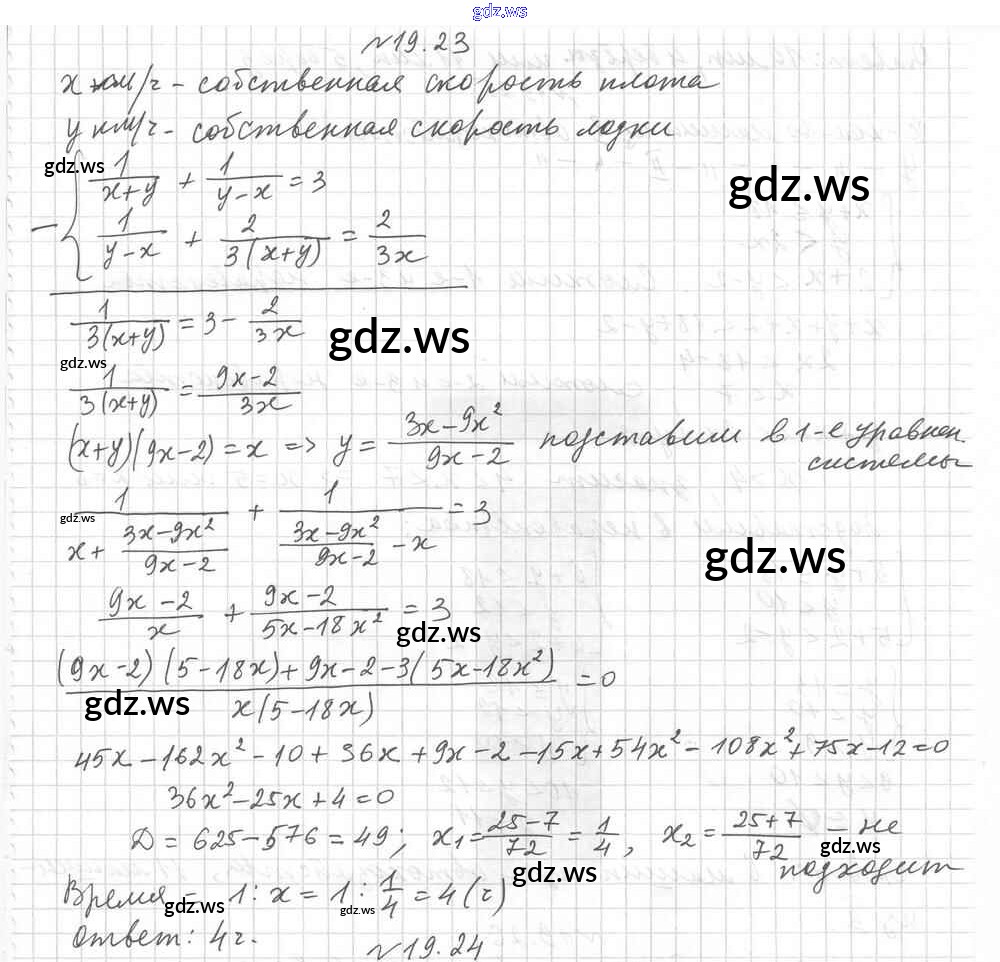 gdz.ws
№19.23
x км/ч - собственная скорость плота
y км/ч - собственная скорость лодки
gdz.ws
gdz.ws
- { 1/(x+y) + 1/(y-x) = 3
1/(y-x) + 2/(3(x+y)) = 2/(3x)
1/(3(x+y)) = 3 - 2/(3x)
gdz.ws
gdz.ws
1/(3(x+y)) = (9x-2)/(3x)
(x+y)(9x-2) = x => y = (3x-9x²)/(9x-2) подставим в 1-е уравнен.
системы
gdz.ws
1/(x + (3x-9x²)/(9x-2)) + 1/((3x-9x²)/(9x-2) - x) = 3
gdz.ws
(9x-2)/x + (9x-2)/(5x-18x²) = 3
gdz.ws
((9x-2)(5-18x)+9x-2-3(5x-18x²))/(x(5-18x)) = 0
gdz.ws
45x-162x²-10+36x+9x-2-15x+54x²-108x²+75x-12=0
36x²-25x+4=0
D = 625-576 = 49; x₁ = (25-7)/72 = 1/4, x₂ = (25+7)/72 - не
подходит
gdz.ws
gdz.ws
Время = 1 : x = 1 : 1/4 = 4 (ч)
gdz.ws
gdz.ws
Ответ: 4ч.
№19.24